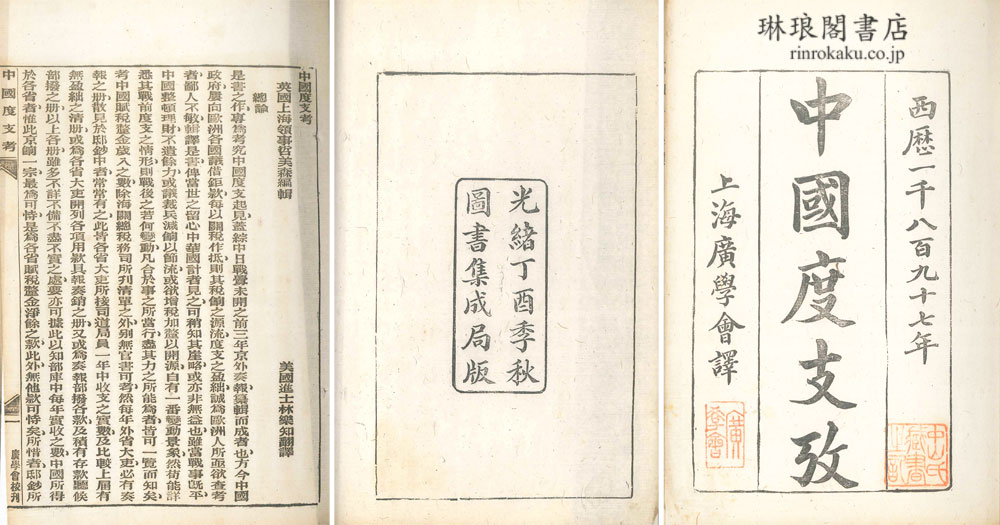 琳琅閣書店
rinrokaku.co.jp
西歴一千八百九十七年
中國度支攷
上海廣學會譯
光緒丁酉季秋
圖書集成局版
中國度支考
英國上海領事哲美森編輯
美國進士林樂知翻譯
總論
是書之作專爲考究中國度支起見蓋綜中日戰釁未開之前三年京外奏報纂輯而成者也方今中國
政府屢向歐洲各國議借鉅款每以關稅作抵則其稅餉之源流度支之盈絀誠爲歐洲人所亟欲查考
者鄙人不敏輯譯是書俾當世之留心中華國計者見之可稍知其崖略或亦非無益也雖當戰事旣平
中國整頓理財不遺餘力或議裁兵減餉以節流或欲增稅加釐以開源自有一番變動景象然苟能詳
悉其戰前度支之情形則戰後之若何變動凡合於事之所當行盡其力之所能爲者皆可一覽而知矣
考中國賦稅釐金歲入之數除海關總稅務司所刋清單之外別無官書可考然每年外省大吏必有奏
報之册散見於邸鈔中者常常有之此皆各省大吏所接司道局員一年中收支之實數及比較上屆有
無盈絀之清册或爲各省大吏開列各項用款具報奏銷之册又或爲奏報部撥各款及積有存款聽候
部撥之册以上各册雖多不詳不備不盡不實之處要亦可據此以知部庫中每年實收之數中國所得
於各省者惟此京餉一宗最爲可恃是爲各省賦稅釐金淨餘之款此外無他款可恃矣所惜者邸鈔所
中國度支考
一
廣學會校刊